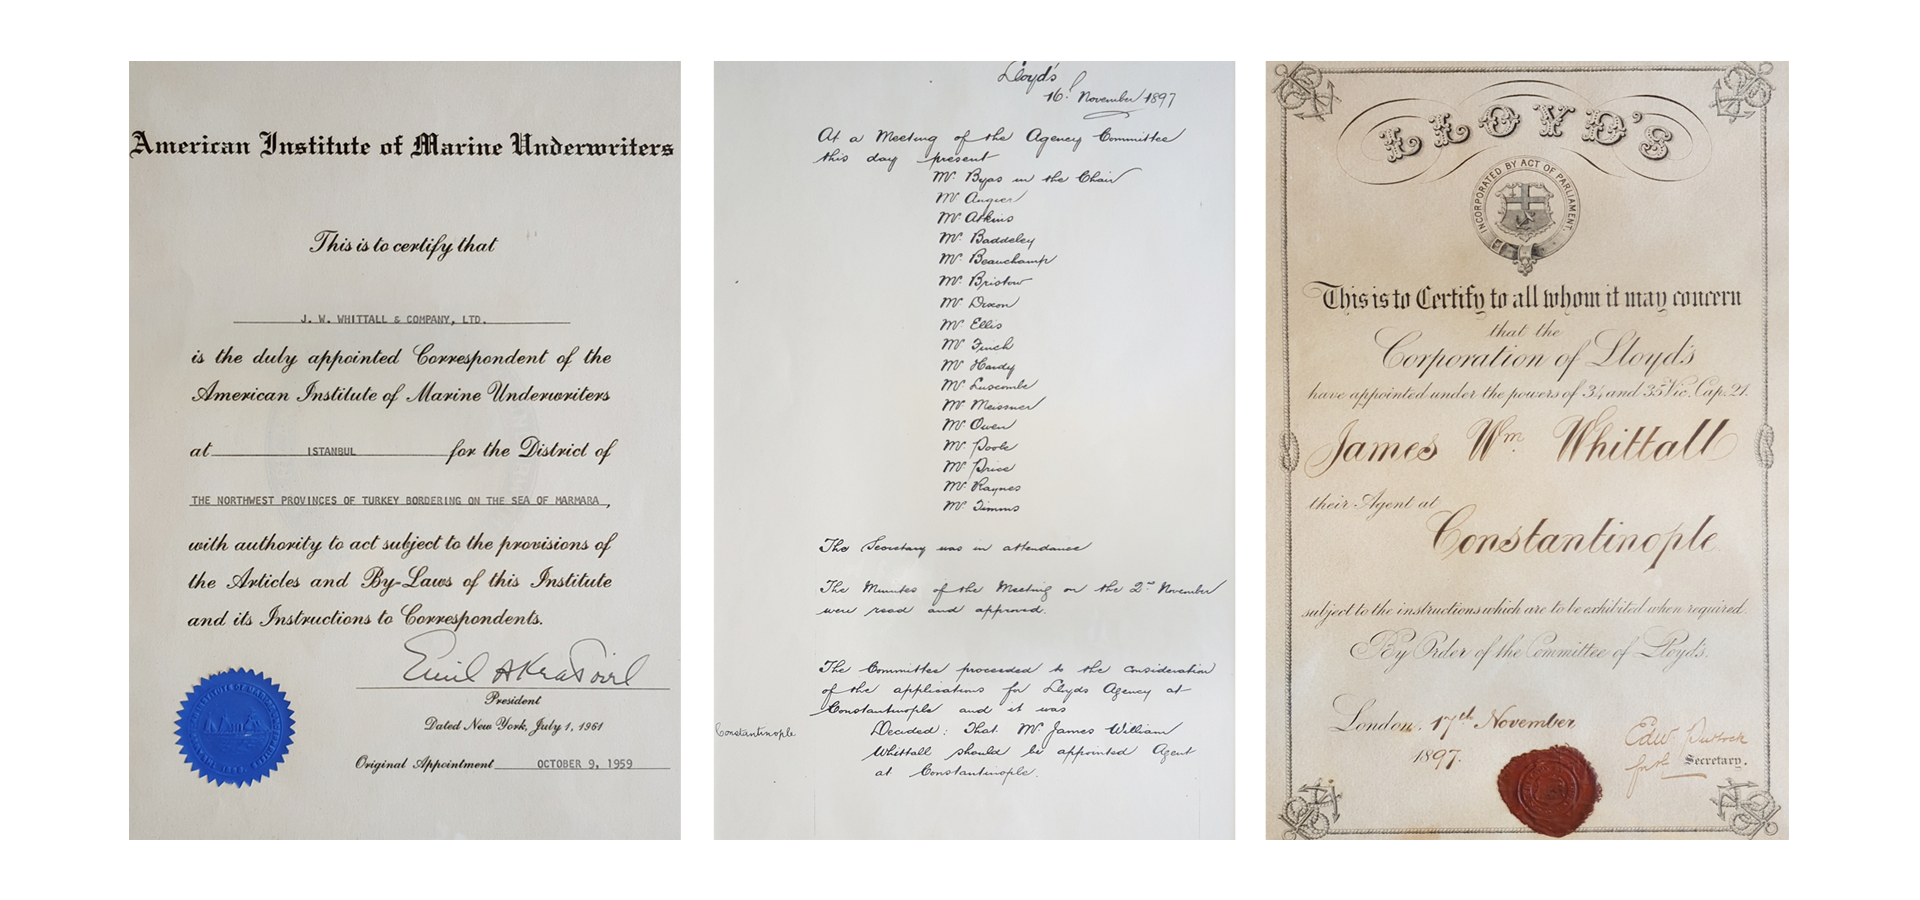 American Institute of Marine Underwriters
This is to certify that
J. W. WHITTALL & COMPANY, LTD.
is the duly appointed Correspondent of the
American Institute of Marine Underwriters
at ISTANBUL for the District of
THE NORTHWEST PROVINCES OF TURKEY BORDERING ON THE SEA OF MARMARA,
with authority to act subject to the provisions of
the Articles and By-Laws of this Institute
and its Instructions to Correspondents.
President
Dated New York, July 1, 1961
Original Appointment OCTOBER 9, 1959
Lloyd's
16th November 1897
At a Meeting of the Agency Committee
this day present
Mr. Byas in the Chair
Mr Angier
Mr Atkins
Mr. Baddeley
Mr. Beauchamp
Mr. Bristow
Mr. Dixon
Mr. Ellis
Mr. Finch
Mr. Hardy
Mr. Luscombe
Mr. Meissner
Mr. Owen
Mr. Poole
Mr. Price
Mr. Raynes
Mr. Timms
The Secretary was in attendance
The Minutes of the Meeting on the 2nd November
were read and approved.
The Committee proceeded to the consideration
of the applications for Lloyds Agency at
Constantinople and it was
Constantinople Decided: That Mr. James William
Whittall should be appointed Agent
at Constantinople.
LLOYD'S
INCORPORATED BY ACT OF PARLIAMENT.
This is to Certify to all whom it may concern
that the
Corporation of Lloyd's
have appointed under the powers of 34 and 35 Vic. Cap. 21.
James Wm. Whittall
their Agent at
Constantinople
subject to the instructions which are to be exhibited when required.
By Order of the Committee of Lloyd's.
London. 17th November
1897.
Secretary.